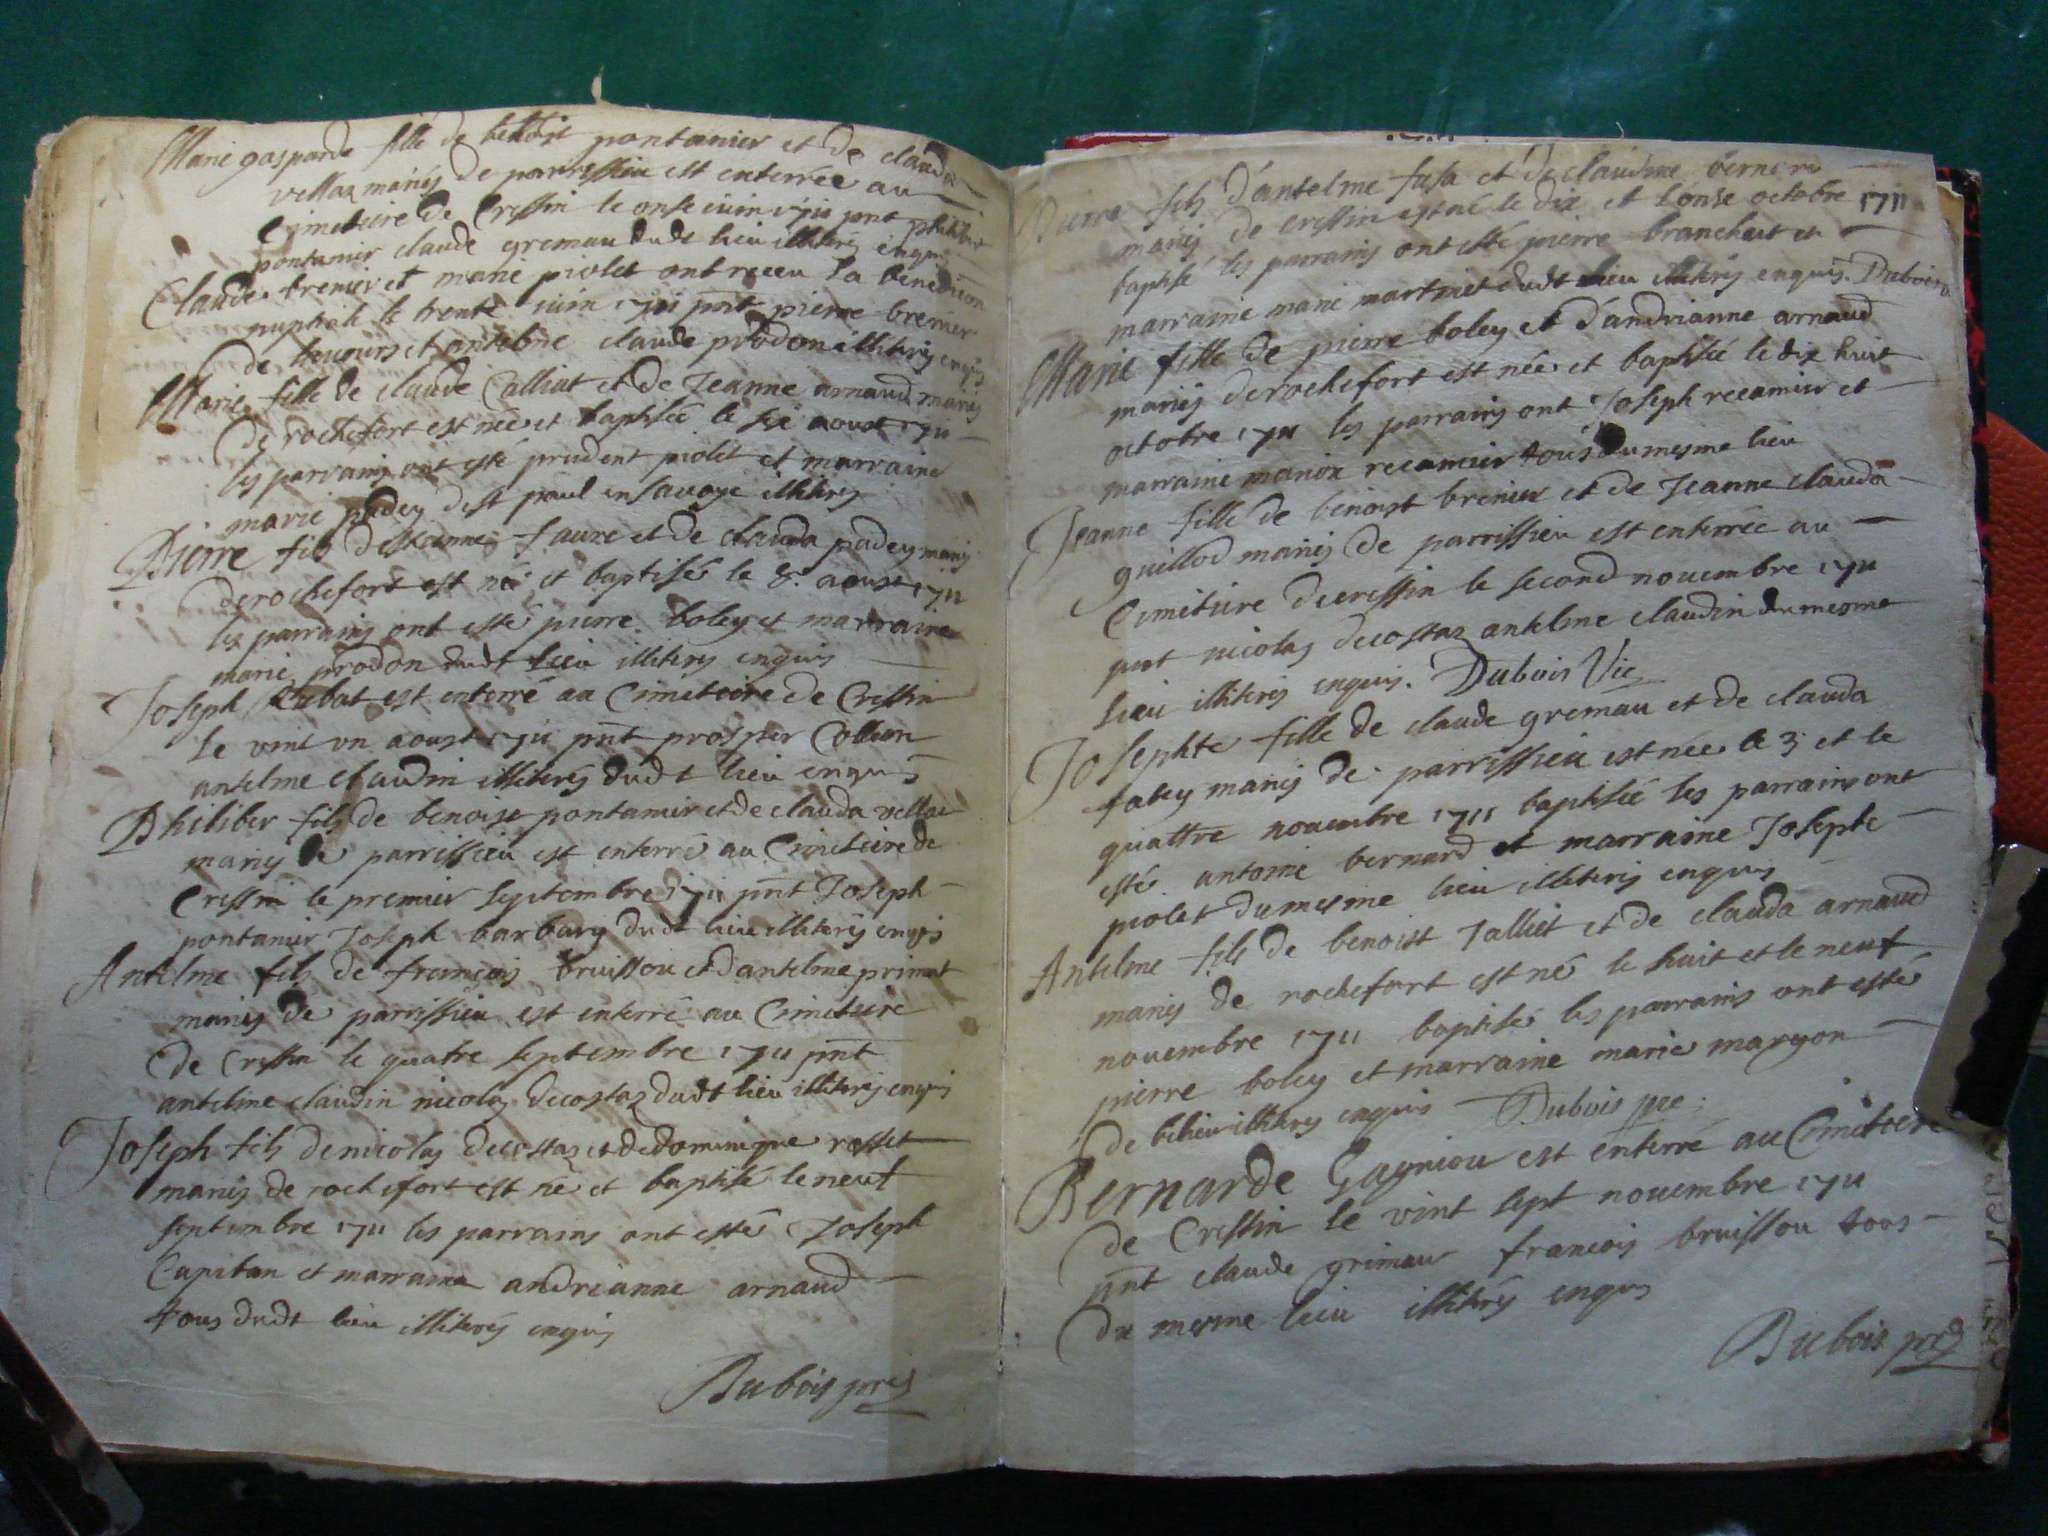 Marie gasparde fille de benoist pontanier et de clauda
vellaz mariés de parrissieu est enterrée au
Cimeteire de Cressin le onse iuin 1711 pnt philibert
pontanier claude gremau dudt lieu illiterés enquis
Claude brenier et marie piolet ont receu la benediction
nuptiale le trente iuin 1711 pnt pierre brenier
de et antelme claude prodon illiterés enquis
Marie fille de claude Calliat et de Jeanne arnaud mariés
de rochefort est née et baptisée le six aoust 1711
les parrains ont esté prudent piolet et marraine
marie padey de st paul en Savoye illiterés
Pierre fils d'estienne faure et de clauda padey mariés
de rochefort est né et baptisé le 8. aoust 1711
les parrains ont esté pierre boley et marraine
marie prodon dudt lieu illiterés enquis
Joseph est enterré au Cimeteire de Cressin
le vint un aoust 1711 pnt prosper
antelme claudin illiterés dudt lieu enquis
Philiber fils de benoist pontanier et de clauda vellaz
mariés de parrissieu est enterré au Cimeteire de
Cressin le premier septembre 1711 pnt Joseph
pontanier Joseph barbary dudt lieu illiterés enquis
Antelme fils de françois bruissou et d'antelme primet
mariés de parrissieu est enterré au Cimeteire
de Cressin le quatre septembre 1711 pnt
antelme claudin nicolas decostaz dudt lieu illiterés enquis
Joseph fils de nicolas decostaz et de dominique rosset
mariés de rochefort est né et baptisé le neuf
septembre 1711 les parrains ont esté Joseph
Capitan et marraine andrianne arnaud
tous dudt lieu illiterés enquis
Dubois pre
Pierre fils d'antelme fusa et de claudine bernerd
mariés de cressin est né le dix et l'onse octobre 1711
baptisé les parrains ont esté pierre branchet et
marraine marie martinet dudt lieu illiterés enquis. Dubois
Marie fille de pierre boley et d'andrianne arnaud
mariés de rochefort est née et baptisée le dix huit
octobre 1711 les parrains ont Joseph recamier et
marraine marion recamier tous du mesme lieu
Jeanne fille de benoist brenier et de Jeanne clauda
guillod mariés de parrissieu est enterrée au
Cimeteire de cressin le second nouembre 1711
pnt nicolas decostaz antelme claudin du mesme
lieu illiterés enquis. Dubois Vic
Josephte fille de claude gremau et de clauda
faley mariés de parrissieu est née le 3 et le
quattre nouembre 1711 baptisée les parrains ont
esté antoine bernard et marraine Josephte
piolet du mesme lieu illiterés enquis
Antelme fils de benoist Jalliet et de clauda arnaud
mariés de rochefort est né le huit et le neuf
nouembre 1711 baptisé les parrains ont esté
pierre boley et marraine marie maryon
de illiterés enquis Dubois pre
Bernarde Gagniou est enterré au Cimeteire
de Cressin le vint sept nouembre 1711
pnt claude grimau francois bruissou tous
du mesme lieu illiterés enquis
Dubois pre